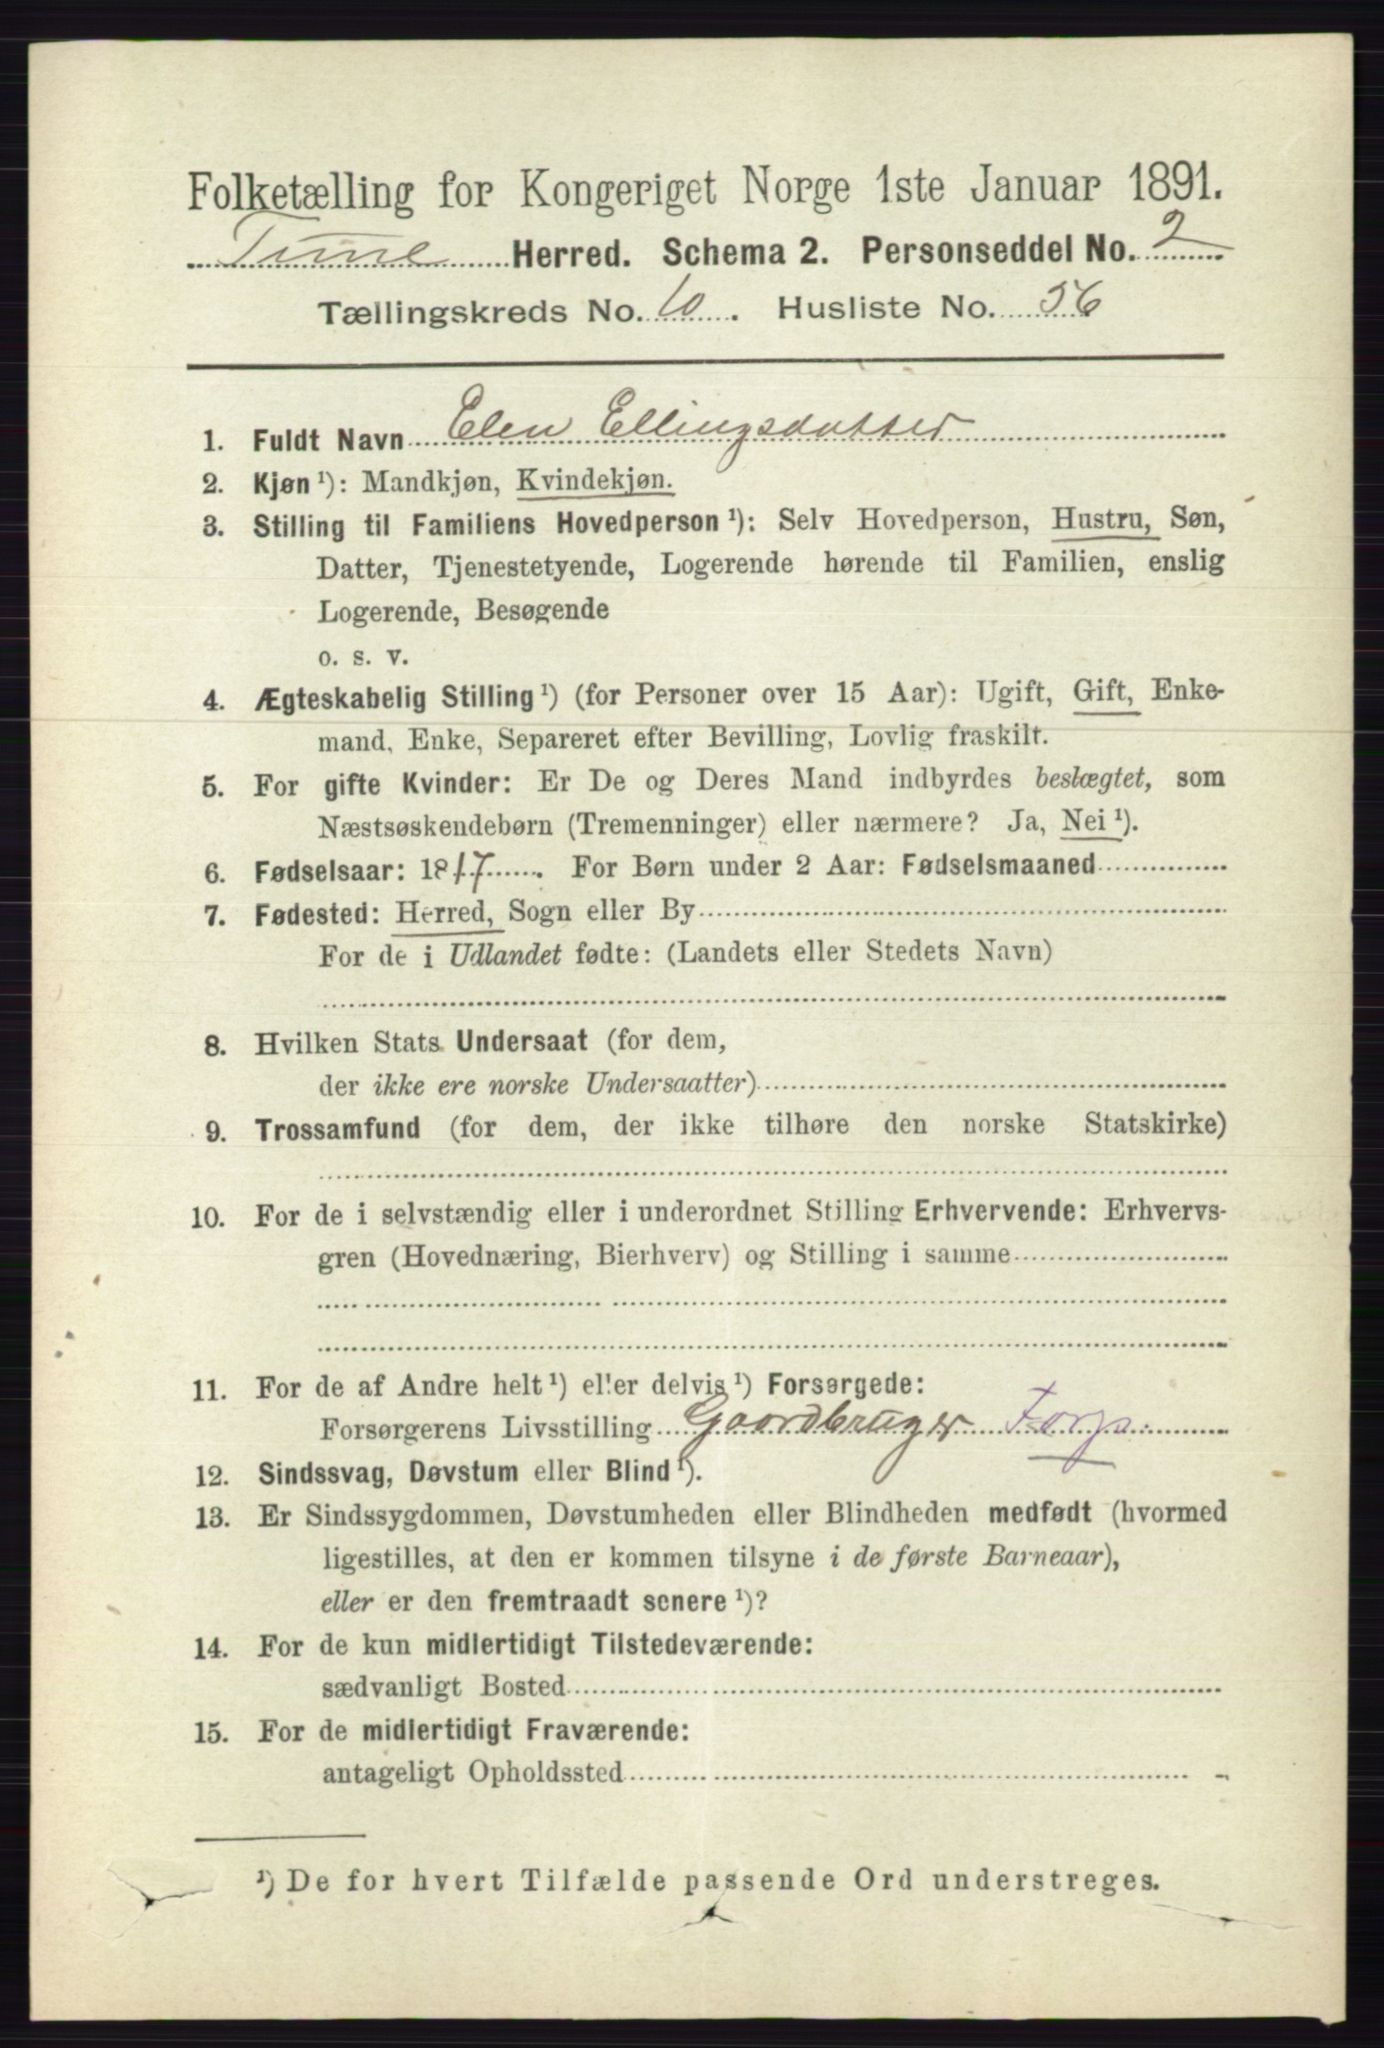 Folketælling for Kongeriget Norge 1ste Januar 1891.
Tune Herred. Schema 2. Personseddel No. 2
Tællingskreds No. 10. Husliste No. 56
1. Fuldt Navn Elen Ellingsdatter
2. Kjøn ¹): Mandkjøn, Kvindekjøn.
3. Stilling til Familiens Hovedperson ¹): Selv Hovedperson, Hustru, Søn,
Datter, Tjenestetyende, Logerende hørende til Familien, enslig
Logerende, Besøgende
o. s. v.
4. Ægteskabelig Stilling ¹) (for Personer over 15 Aar): Ugift, Gift, Enke-
mand, Enke, Separeret efter Bevilling, Lovlig fraskilt.
5. For gifte Kvinder: Er De og Deres Mand indbyrdes beslægtet, som
Næstsøskendebørn (Tremenninger) eller nærmere? Ja, Nei ¹).
6. Fødselsaar: 1817. For Børn under 2 Aar: Fødselsmaaned
7. Fødested: Herred, Sogn eller By
For de i Udlandet fødte: (Landets eller Stedets Navn)
8. Hvilken Stats Undersaat (for dem,
der ikke ere norske Undersaatter)
9. Trossamfund (for dem, der ikke tilhøre den norske Statskirke)
10. For de i selvstændig eller i underordnet Stilling Erhvervende: Erhvervs-
gren (Hovednæring, Bierhverv) og Stilling i samme
11. For de af Andre helt ¹) eller delvis ¹) Forsørgede:
Forsørgerens Livsstilling Gaardbruger Forsp.
12. Sindssvag, Døvstum eller Blind ¹).
13. Er Sindssygdommen, Døvstumheden eller Blindheden medfødt (hvormed
ligestilles, at den er kommen tilsyne i de første Barneaar),
eller er den fremtraadt senere ¹)?
14. For de kun midlertidigt Tilstedeværende:
sædvanligt Bosted
15. For de midlertidigt Fraværende:
antageligt Opholdssted
¹) De for hvert Tilfælde passende Ord understreges.